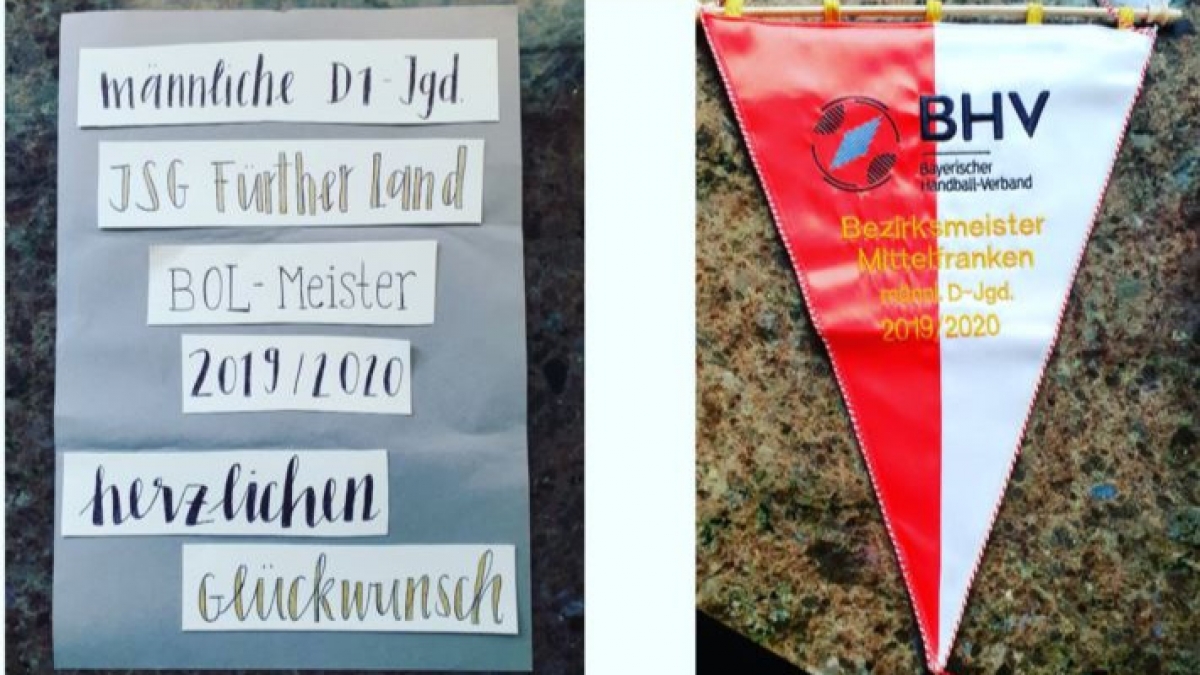 männliche D1-Jgd.
JSG Fürther Land
BOL-Meister
2019/2020
herzlichen
Glückwunsch
BHV
Bayerischer
Handball-Verband
Bezirksmeister
Mittelfranken
männl. D-Jgd.
2019/2020